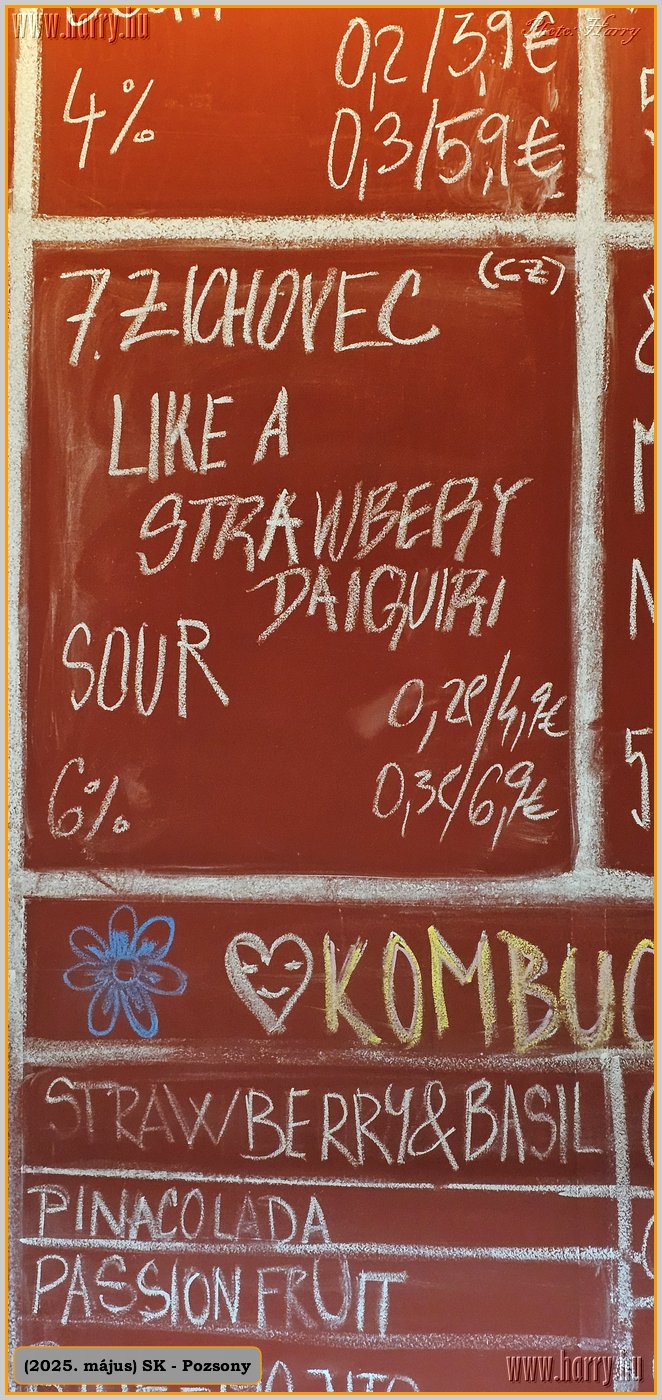 www.harry.hu
Photo: Harry
0,2/3,9€
4%
0,3/5,9€
7. ZICHOVEC (CZ)
LIKE A
STRAWBERY
DAIQUIRI
SOUR
0,2l/4,9€
6%
0,3l/6,9€
KOMBUC
STRAWBERRY&BASIL
PINACOLADA
PASSION FRUIT
(2025. május) SK - Pozsony
www.harry.hu